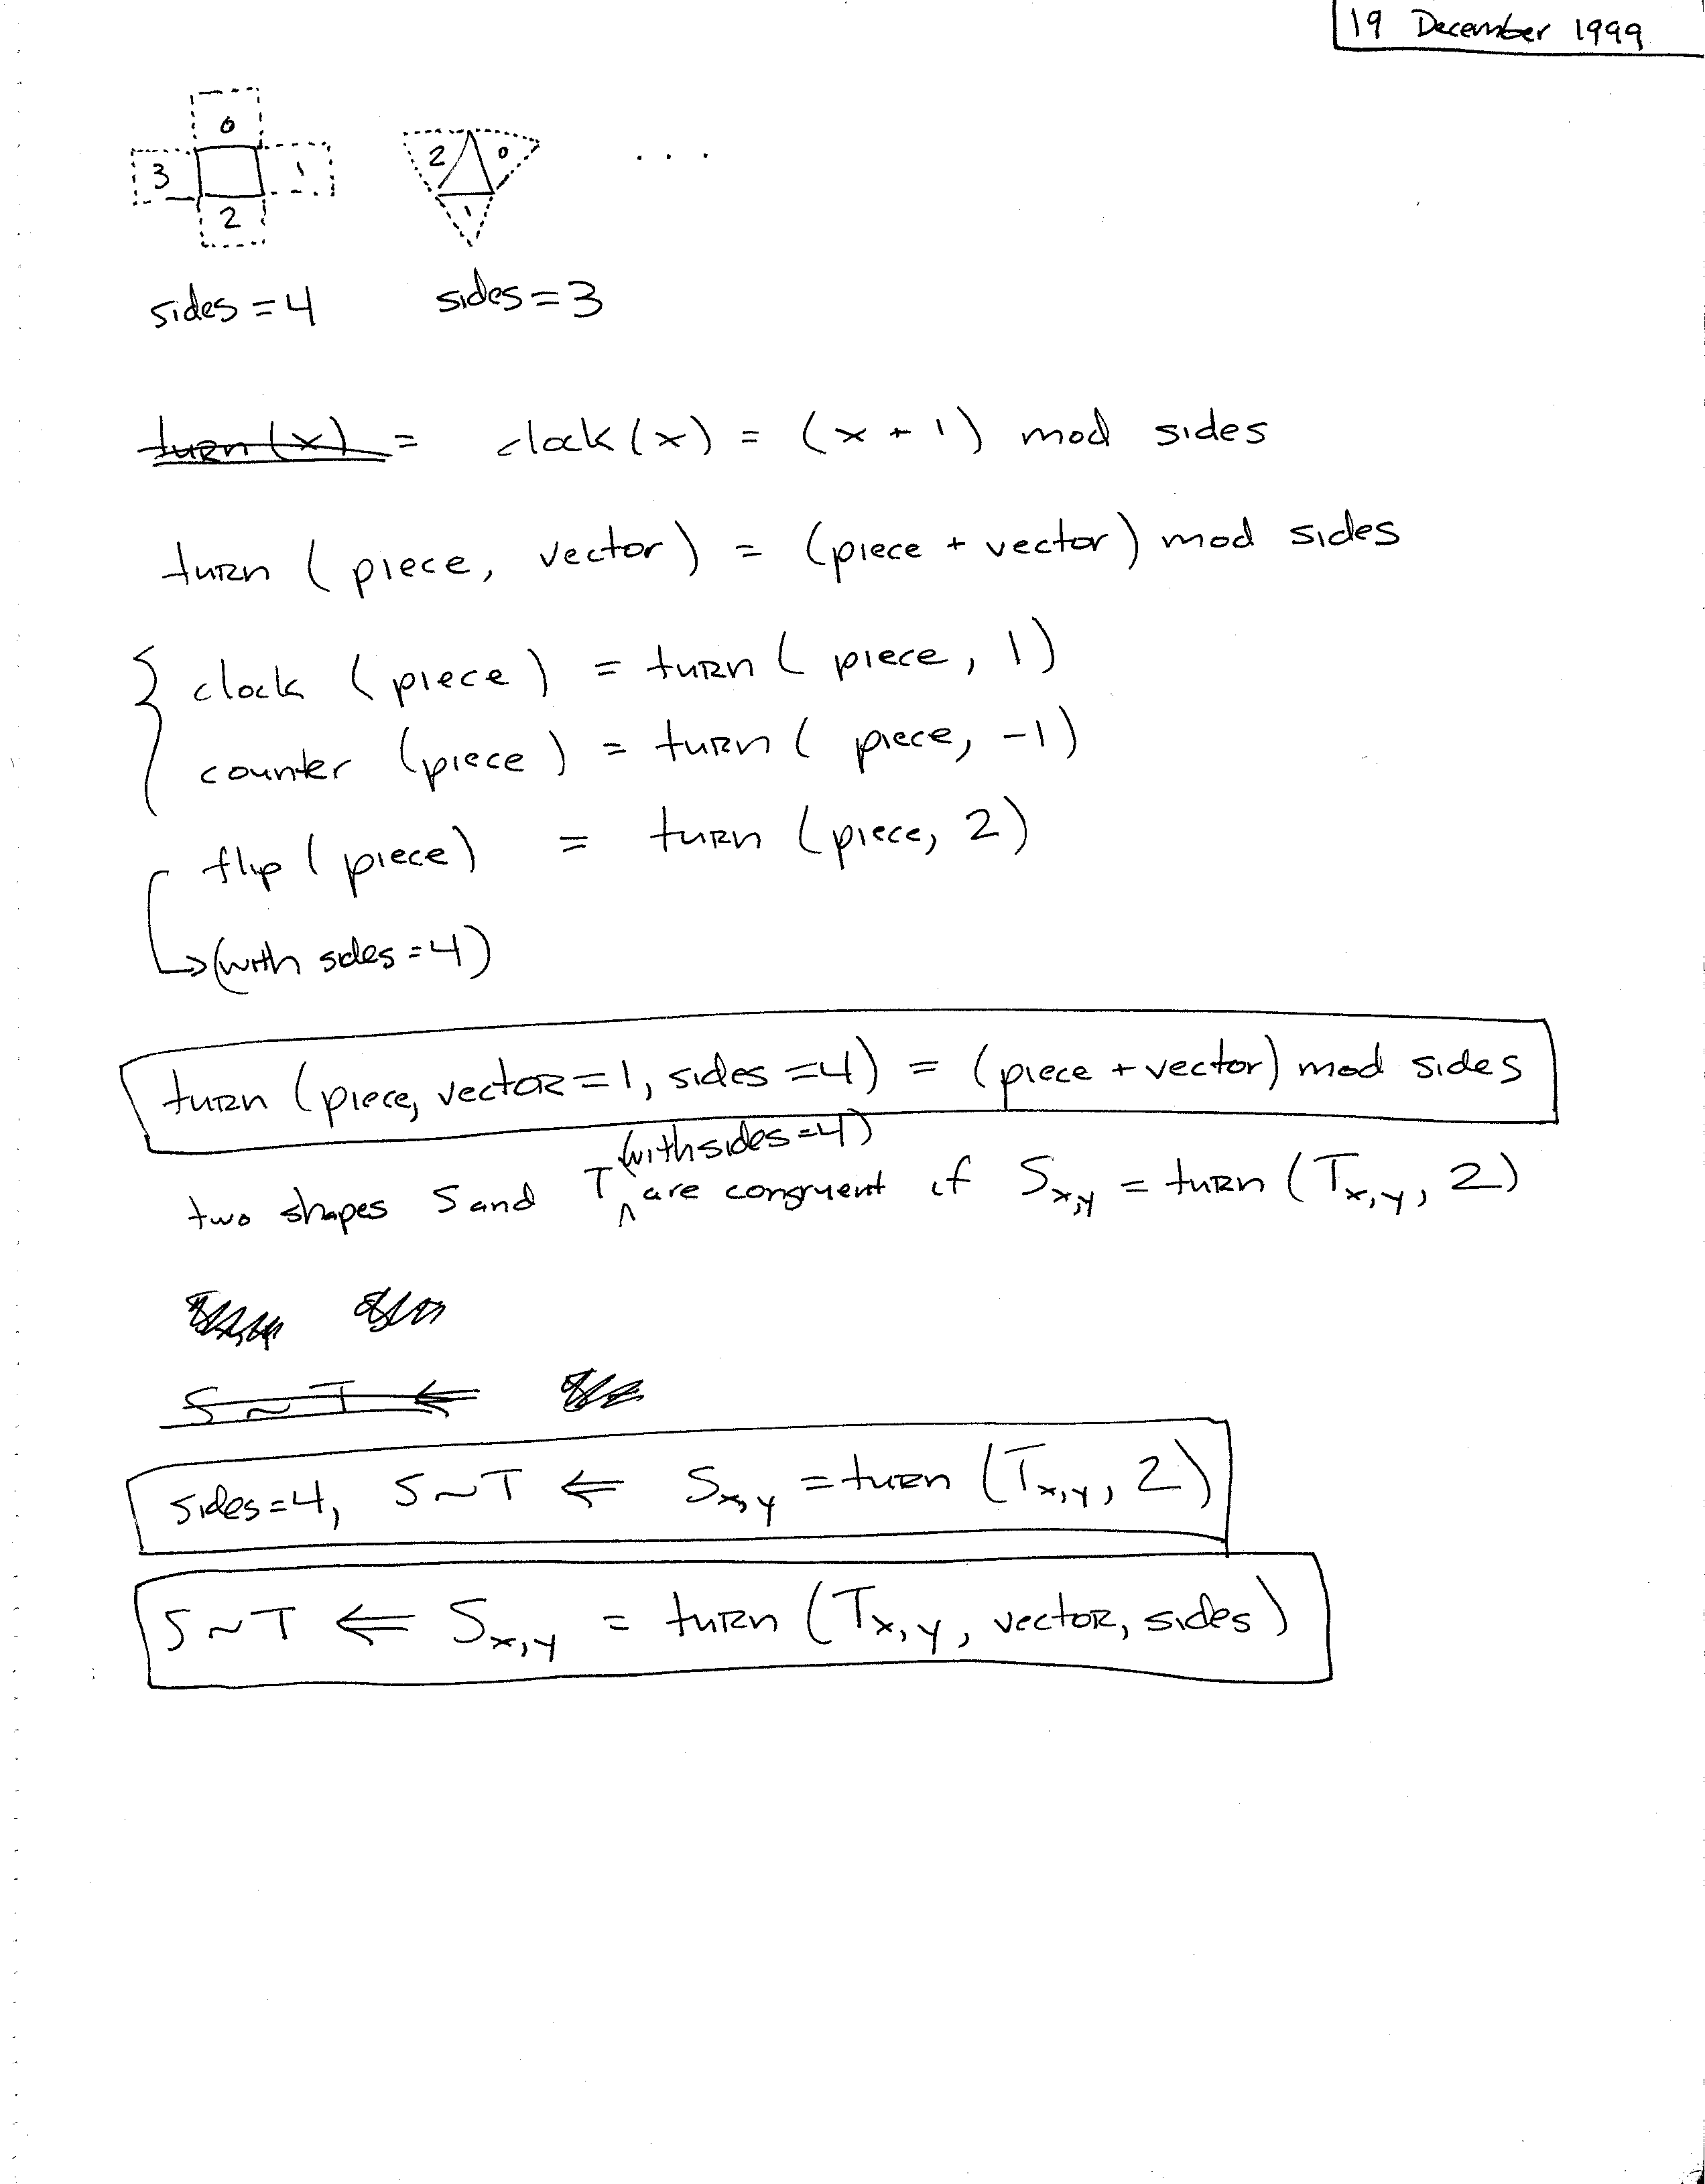 19 December 1999
0
3 1
2
2 0
1
...
sides = 4 sides = 3
turn(x) = clock(x) = (x + 1) mod sides
turn (piece, vector) = (piece + vector) mod sides
{ clock (piece) = turn (piece, 1)
counter (piece) = turn (piece, -1)
flip (piece) = turn (piece, 2)
↳ (with sides = 4)
turn (piece, vector = 1, sides = 4) = (piece + vector) mod sides
(with sides = 4)
two shapes S and T ^ are congruent if S x,y = turn (T x,y, 2)
S ~ T ⇐
sides = 4, S ~ T ⇐ S x,y = turn (T x,y, 2)
S ~ T ⇐ S x,y = turn (T x,y, vector, sides)